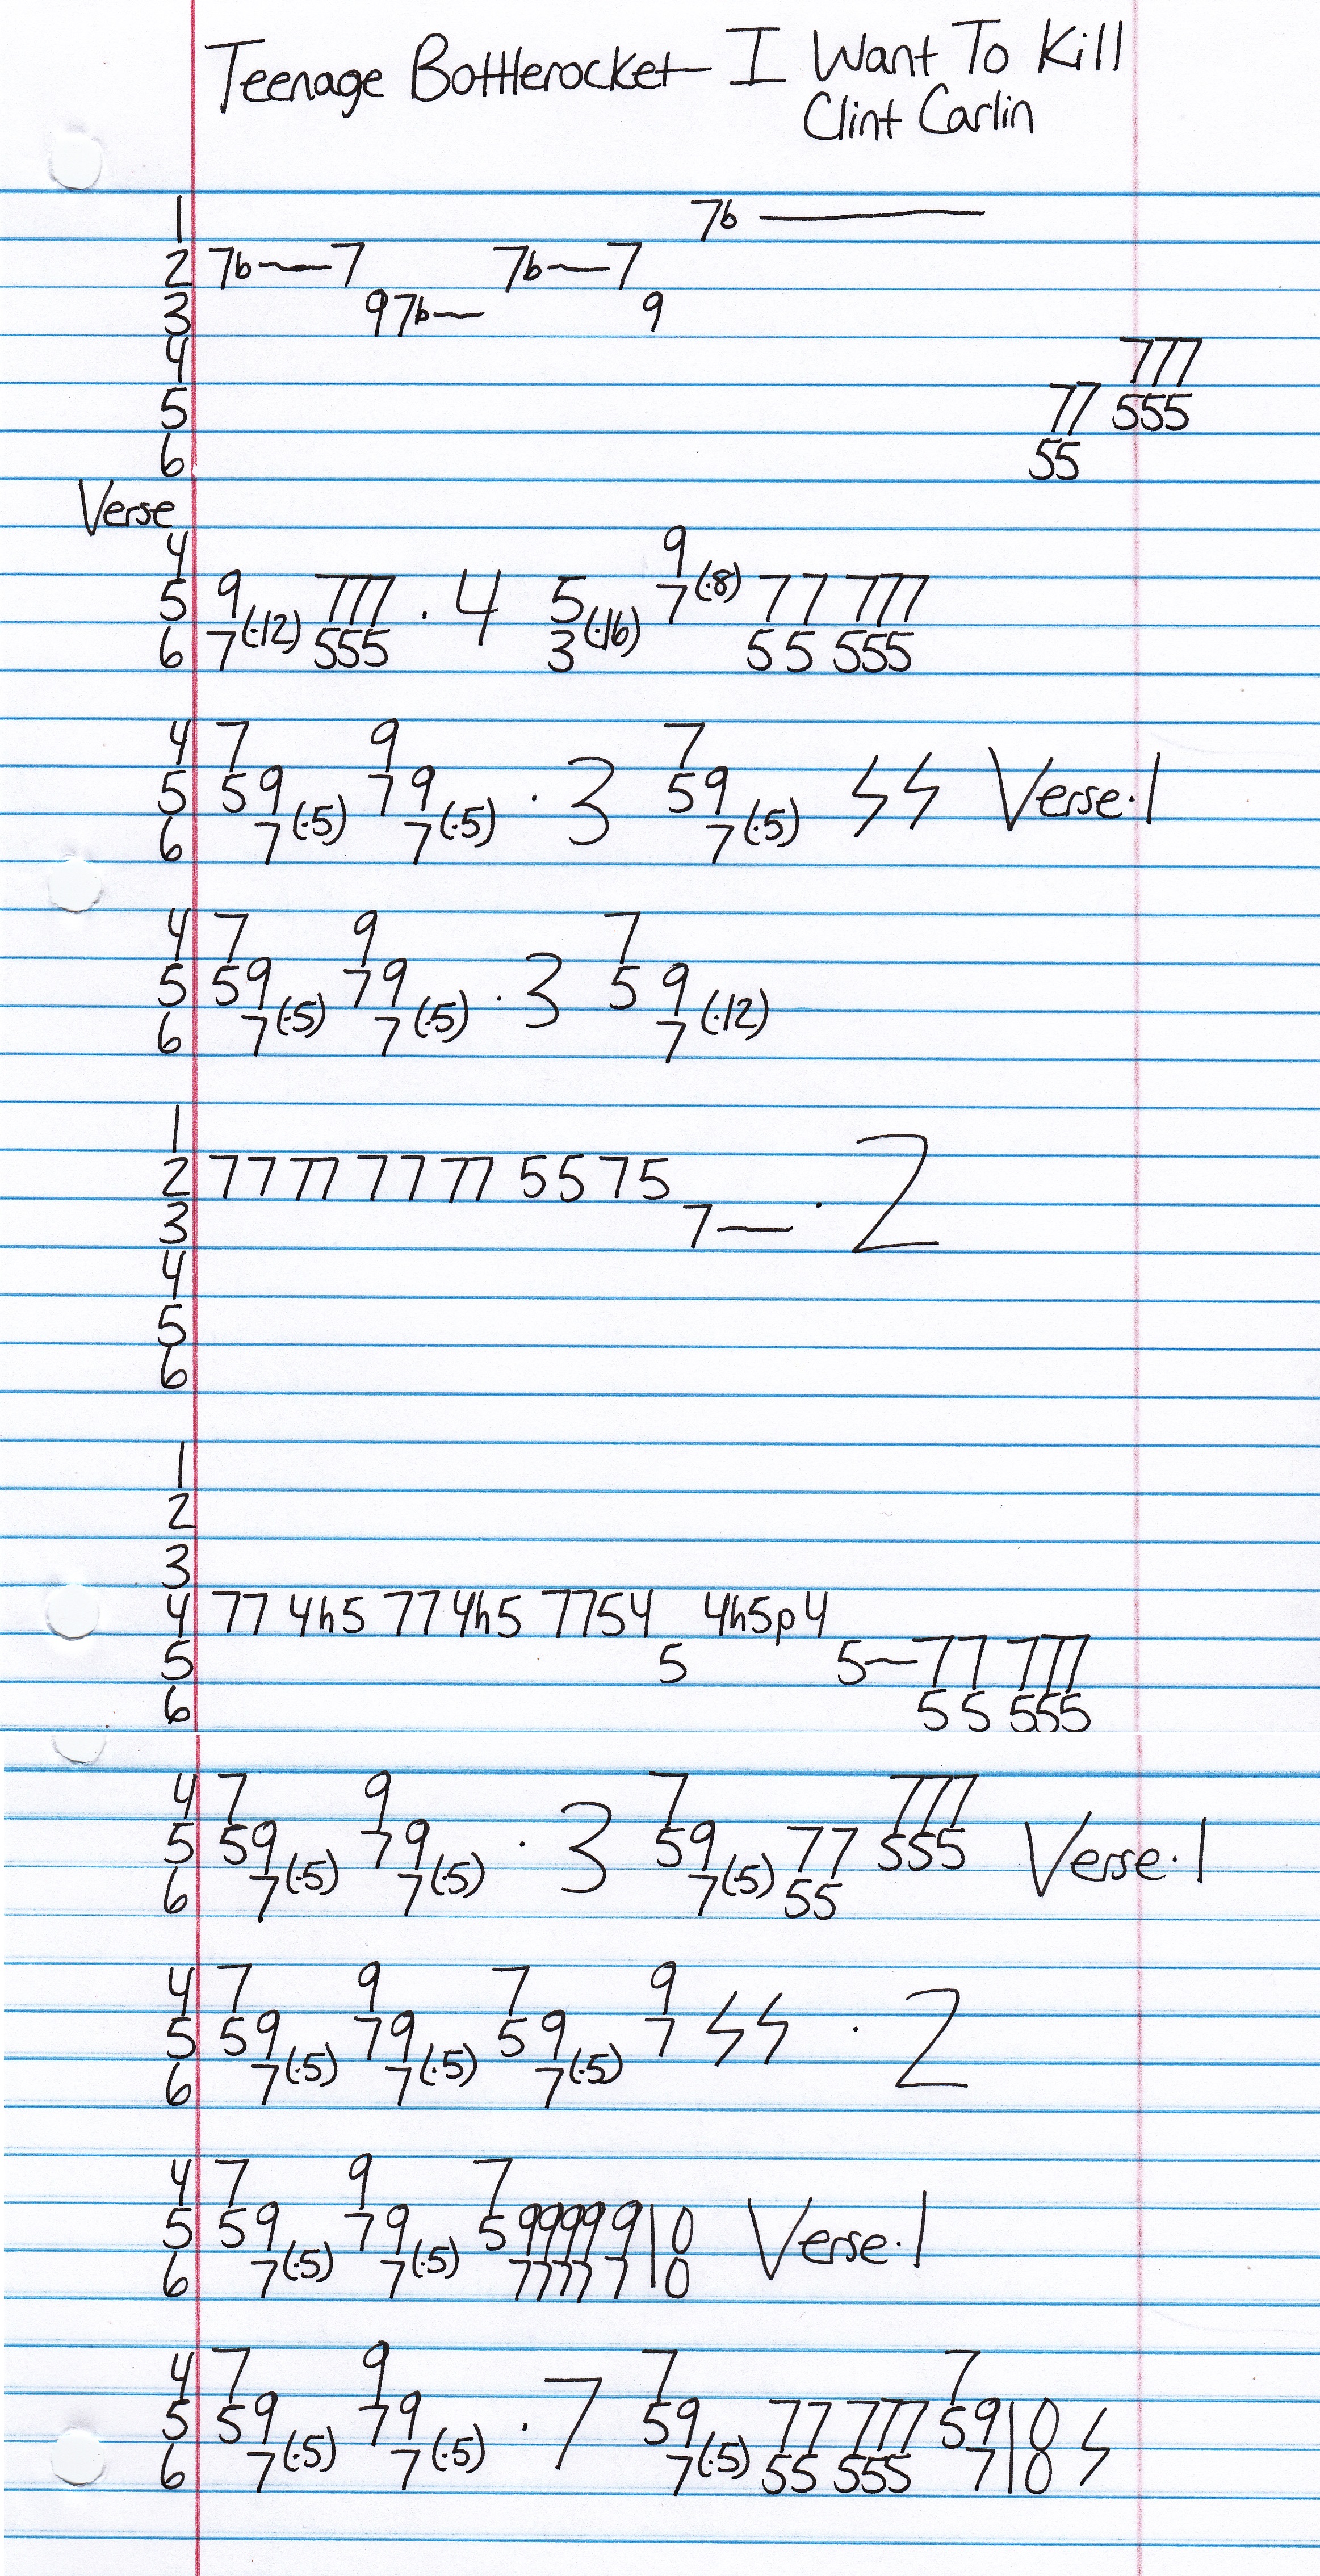 Teenage Bottlerocket - I Want To Kill
Clint Carlin
1 7b —
2 7b — 7 7b — 7
3 9 7b — 9
4 777
5 77 555
6 55
Verse
4 9
5 9 777 · 4 5 7 (·8) 77 777
6 7 (·12) 555 3 (·16) 5 5 555
4 7 9 7
5 59 79 · 3 59 ϟϟ Verse · 1
6 7 (·5) 7 (·5) 7 (·5)
4 7 9 7
5 59 79 · 3 5 9
6 7 (·5) 7 (·5) 7 (·12)
1
2 77 77 77 77 55 75
3 7 — · 2
4
5
6
1
2
3
4 77 4h5 77 4h5 7754 4h5p4
5 5 5 — 77 777
6 5 5 555
4 7 9 7 777
5 59 79 · 3 59 77 555 Verse · 1
6 7 (·5) 7 (·5) 7 (·5) 55
4 7 9 7 9
5 59 79 59 7 ϟϟ · 2
6 7 (·5) 7 (·5) 7 (·5)
4 7 9 7
5 59 79 5 9999 9 10 Verse · 1
6 7 (·5) 7 (·5) 7777 7 0
4 7 9 7 7
5 59 79 · 7 59 77 777 59 10 ϟ
6 7 (·5) 7 (·5) 7 (·5) 55 555 7 0